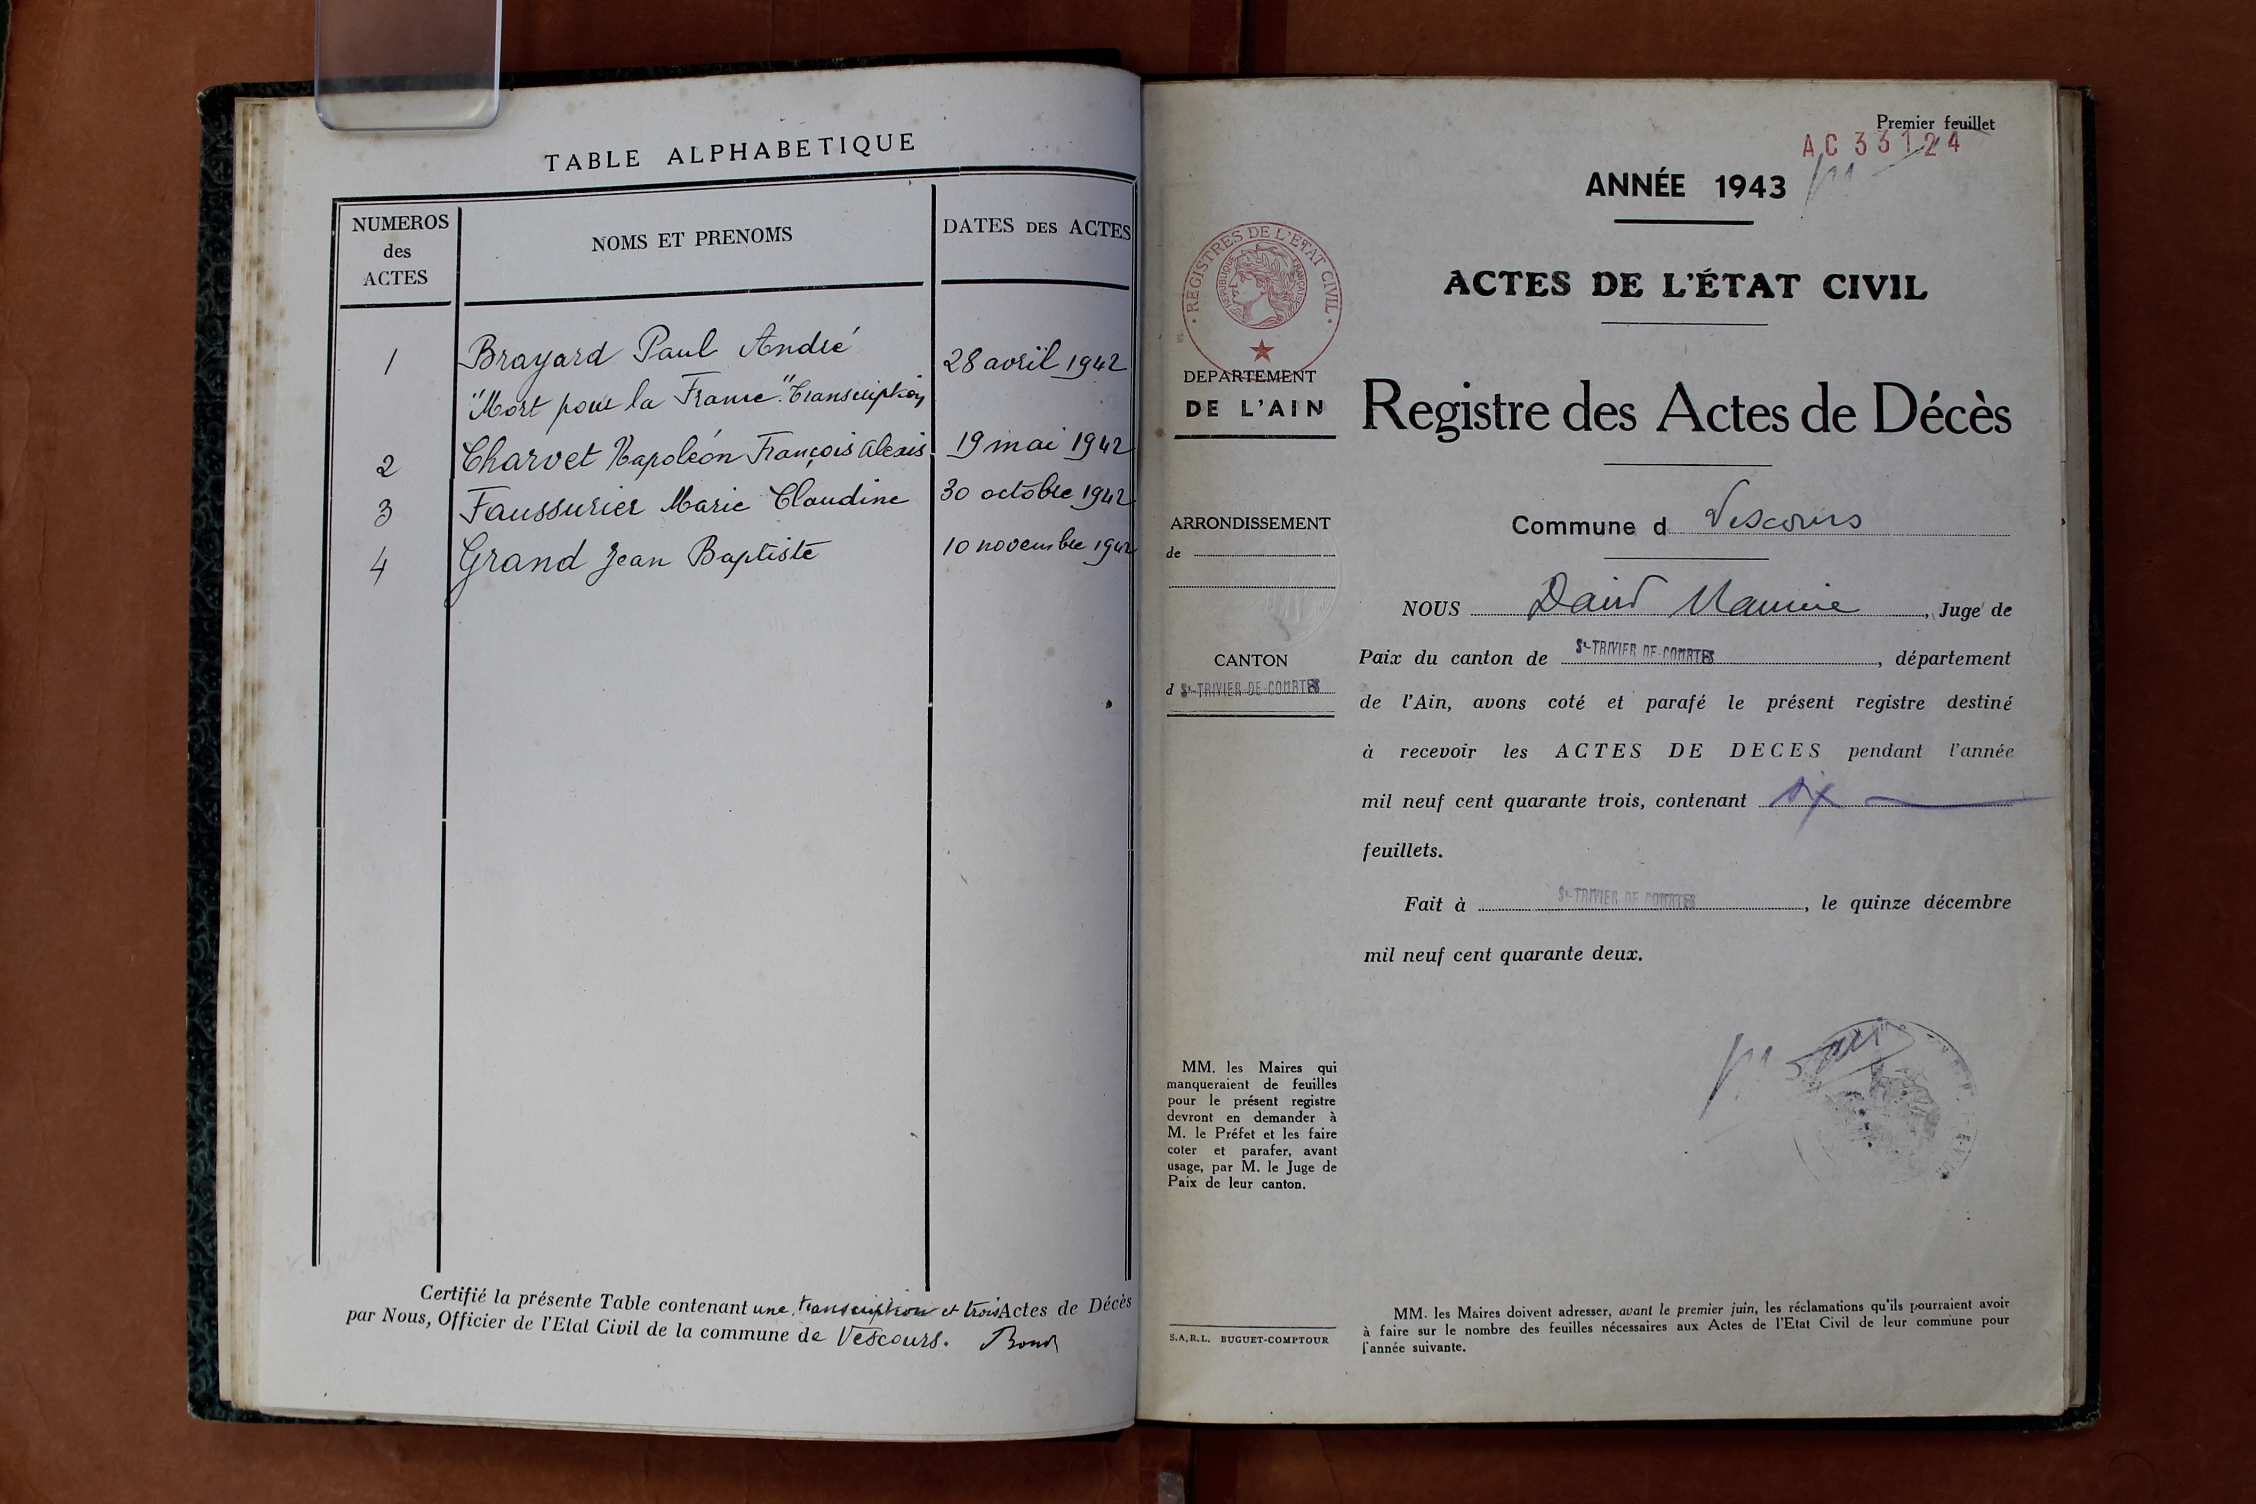 TABLE ALPHABETIQUE
NUMEROS
des
ACTES
NOMS ET PRENOMS
DATES DES ACTES
1 Brayard Paul André 28 avril 1942
"Mort pour la France". Transcription
2 Charvet Napoléon François Alexis 19 mai 1942
3 Faussurier Marie Claudine 30 octobre 1942
4 Grand Jean Baptiste 10 novembre 1942
Certifié la présente Table contenant une transcription et trois Actes de Décès
par Nous, Officier de l'Etat Civil de la commune de Vescours.
Premier feuillet
AC 33124
ANNÉE 1943
REGISTRES DE L'ETAT CIVIL
REPUBLIQUE FRANÇAISE
DEPARTEMENT
DE L'AIN
ARRONDISSEMENT
de
CANTON
d St-TRIVIER-DE-COURTES
MM. les Maires qui
manqueraient de feuilles
pour le présent registre
devront en demander à
M. le Préfet et les faire
coter et parafer, avant
usage, par M. le Juge de
Paix de leur canton.
S.A.R.L. BUGUET-COMPTOUR
ACTES DE L'ÉTAT CIVIL
Registre des Actes de Décès
Commune d Vescours
NOUS David Maurice, Juge de
Paix du canton de St-TRIVIER-DE-COURTES, département
de l'Ain, avons coté et parafé le présent registre destiné
à recevoir les ACTES DE DECES pendant l'année
mil neuf cent quarante trois, contenant six
feuillets.
Fait à St-TRIVIER DE COURTES, le quinze décembre
mil neuf cent quarante deux.
MM. les Maires doivent adresser, avant le premier juin, les réclamations qu'ils pourraient avoir
à faire sur le nombre des feuilles nécessaires aux Actes de l'Etat Civil de leur commune pour
l'année suivante.